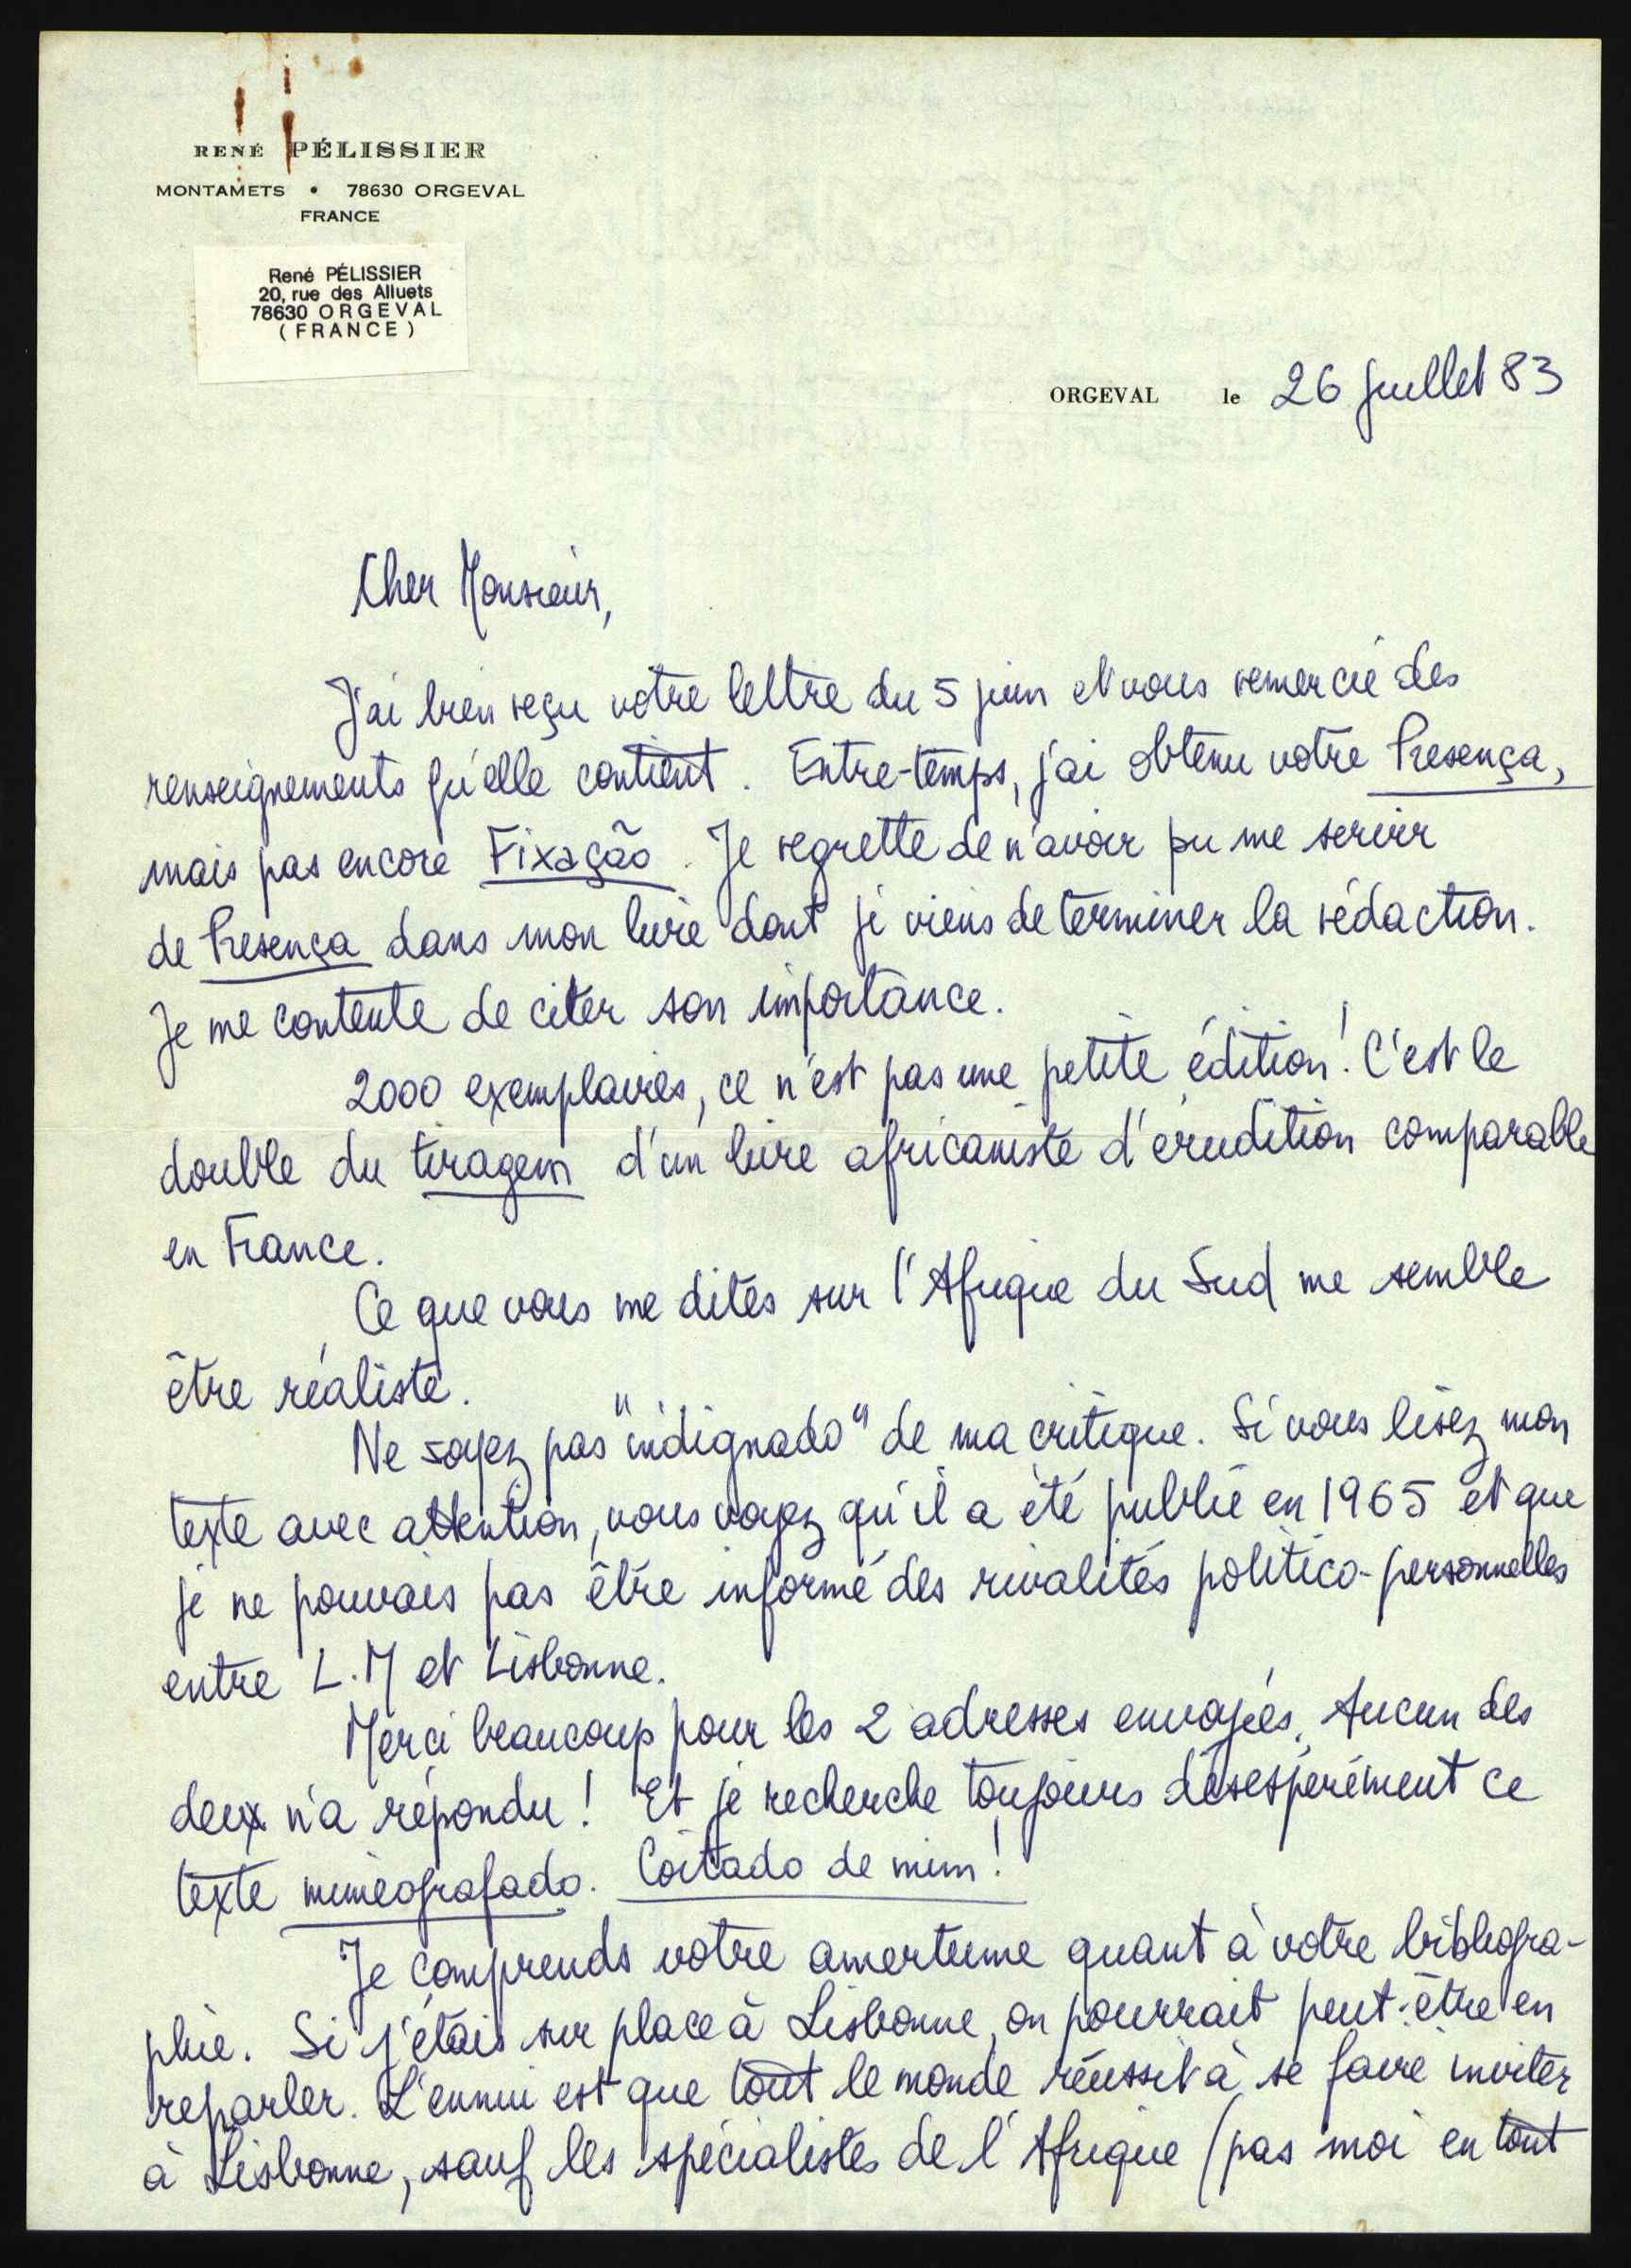 RENÉ PÉLISSIER
MONTAMETS • 78630 ORGEVAL
FRANCE
René PÉLISSIER
20, rue des Alluets
78630 ORGEVAL
(FRANCE)
ORGEVAL le 26 juillet 83
Cher Monsieur,
J'ai bien reçu votre lettre du 5 juin et vous remercie des
renseignements qu'elle contient. Entre-temps, j'ai obtenu votre Presença,
mais pas encore Fixação. Je regrette de n'avoir pu me servir
de Presença dans mon livre dont je viens de terminer la rédaction.
Je me contente de citer son importance.
2000 exemplaires, ce n'est pas une petite édition! C'est le
double du tiragem d'un livre africaniste d'érudition comparable
en France.
Ce que vous me dites sur l'Afrique du Sud me semble
être réaliste.
Ne soyez pas "indignado" de ma critique. Si vous lisez mon
texte avec attention, vous voyez qu'il a été publié en 1965 et que
je ne pouvais pas être informé des rivalités politico-personnelles
entre L.M et Lisbonne.
Merci beaucoup pour les 2 adresses envoyées. Aucun des
deux n'a répondu! Et je recherche toujours désespérément ce
texte mimeografado. Coitado de mim!
Je comprends votre amertume quant à votre bibliogra-
phie. Si j'étais sur place à Lisbonne, on pourrait peut-être en
reparler. L'ennui est que tout le monde réussit à se faire inviter
à Lisbonne, sauf les spécialistes de l'Afrique (pas moi en tout